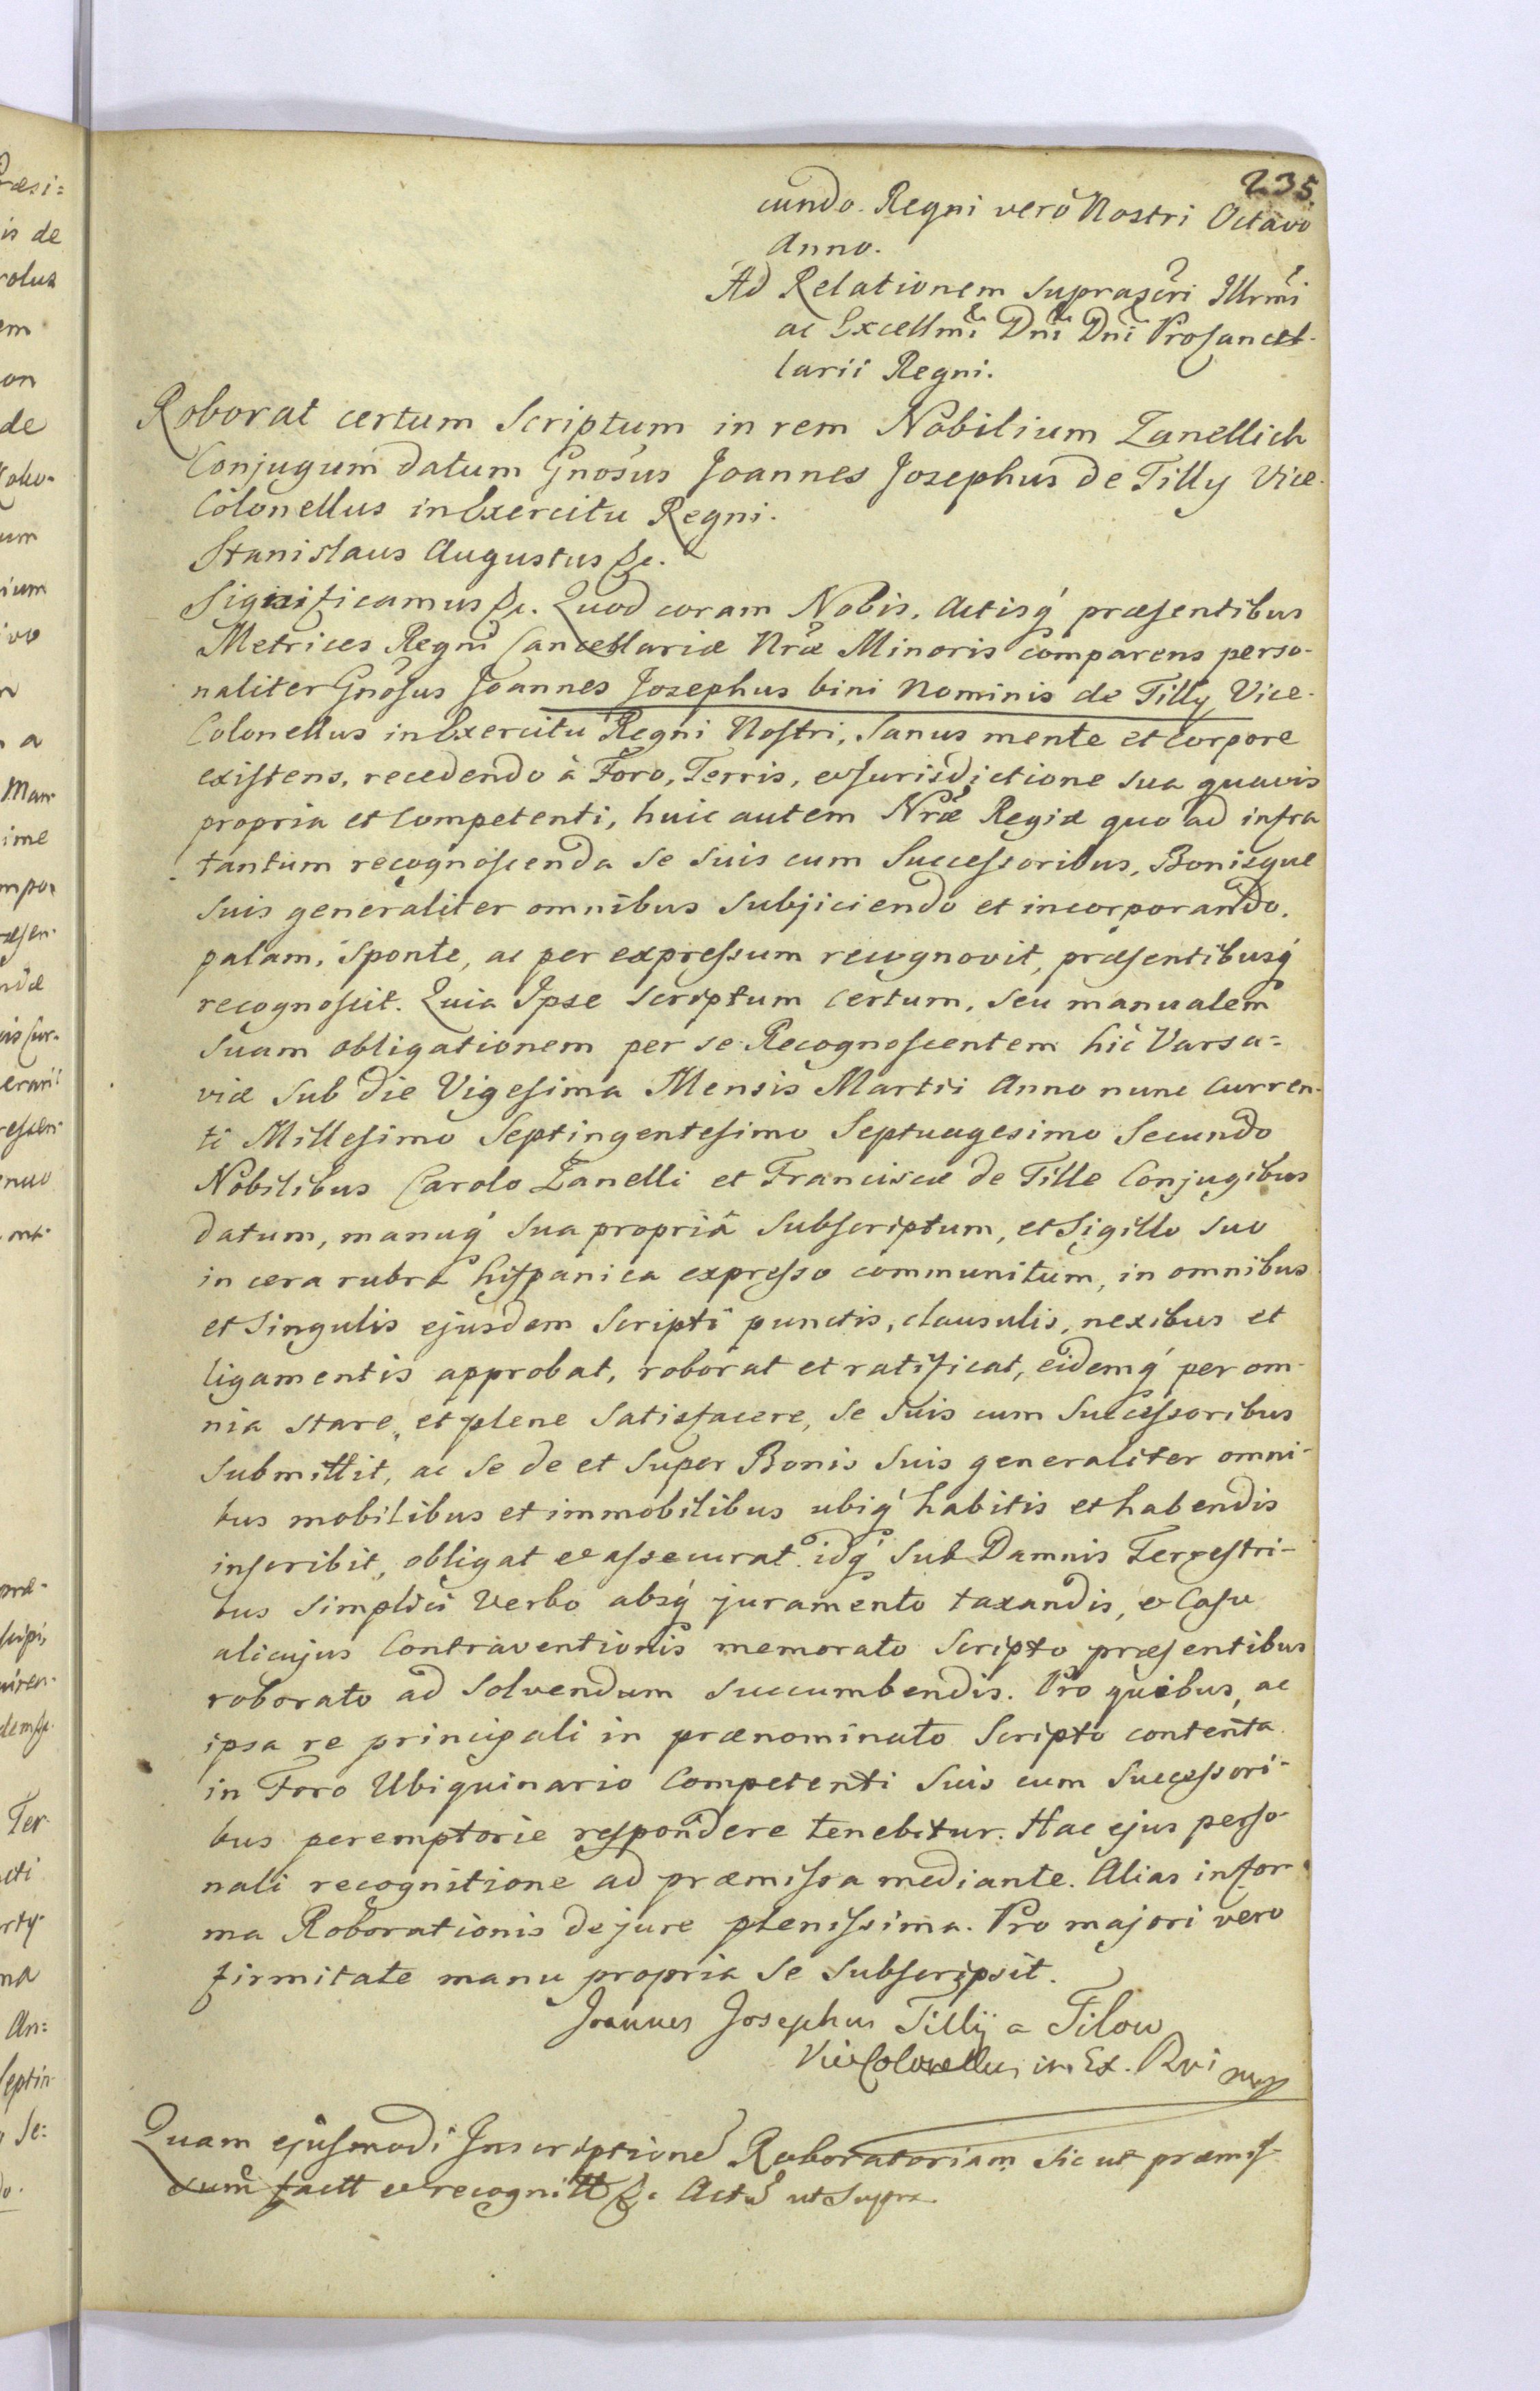 235.
cundo. Regni verò Nostri Octavo
Anno.
Ad Relationem suprascri Illrmi
ac Excellmi Dni Dni Procancel-
larii Regni.
Roborat certum Scriptum in rem Nobilium Zanellich
Conjugum datum Gnosus Joannes Josephus de Tilly Vice-
Colonellus in Exercitu Regni.
Stanislaus Augustus &c.
Significamus &c. Quod coram Nobis, Actisq́ præsentibus
Metrices Regni Cancellariæ Nræ Minoris comparens perso-
naliter Gnosus Joannes Josephus bini Nominis de Tilly Vice-
Colonellus in Exercitu Regni Nostri, Sanus mente et Corpore
existens, recedendo à Foro, Terris, et Jurisdictione sua quavis
propria et Competenti, huic autem Nræ Regiæ quo ad infra
tantum recognoscenda se suis cum Successoribus, Bonisque
suis generaliter omnibus subjiciendo et incorporando.
palam, sponte, ac per expressum recognovit, præsentibusq́
recognoscit. Quia Ipse Scriptum Certum, seu manualem
suam obligationem per se Recognoscentem hic Varsa=
viæ sub die Vigesima Mensis Martii Anno nunc Curren-
ti Millesimo Septingentesimo Septuagesimo Secundo
Nobilibus Carolo Zanelli et Franciscæ de Tille Conjugibus
datum, manuq́ sua propriâ subscriptum, et Sigillo suo
in cera rubra hispanica expresso communitum, in omnibus
et singulis ejusdem Scripti punctis, clausulis, nexibus et
ligamentis approbat, roborat et ratificat, eidemq́ per om-
nia stare, et plene Satisfacere, se suis cum Successoribus
submittit, ac se de et super Bonis suis generaliter omni-
bus mobilibus et immobilibus ubiq́ habitis et habendis
inscribit, obligat et assecurat. idq́ sub Damnis Terrestri-
bus simplici Verbo absq́ juramento taxandis, et Casu
alicujus Contraventionis memorato Scripto præsentibus
roborato ad solvendum succumbendis. Pro quibus, ac
ipsa re principali in prænominato Scripto contenta
in Foro Ubiquinario Competenti suis cum Successori-
bus peremptorie respondere tenebitur. Hac ejus perso-
nali recognitione ad præmissa mediante. Alias in for-
ma Roborationis de jure plenissima. Pro majori vero
firmitate manu propria se subscripsit.
Joannes Josephus Tillÿ a Tilow
ViceColonellus in Ex. Rni mp
Quam ejusmodi Inscriptione Roboratoriam sic ut præmis-
sum factt et recognitt &c Act ut Supra.